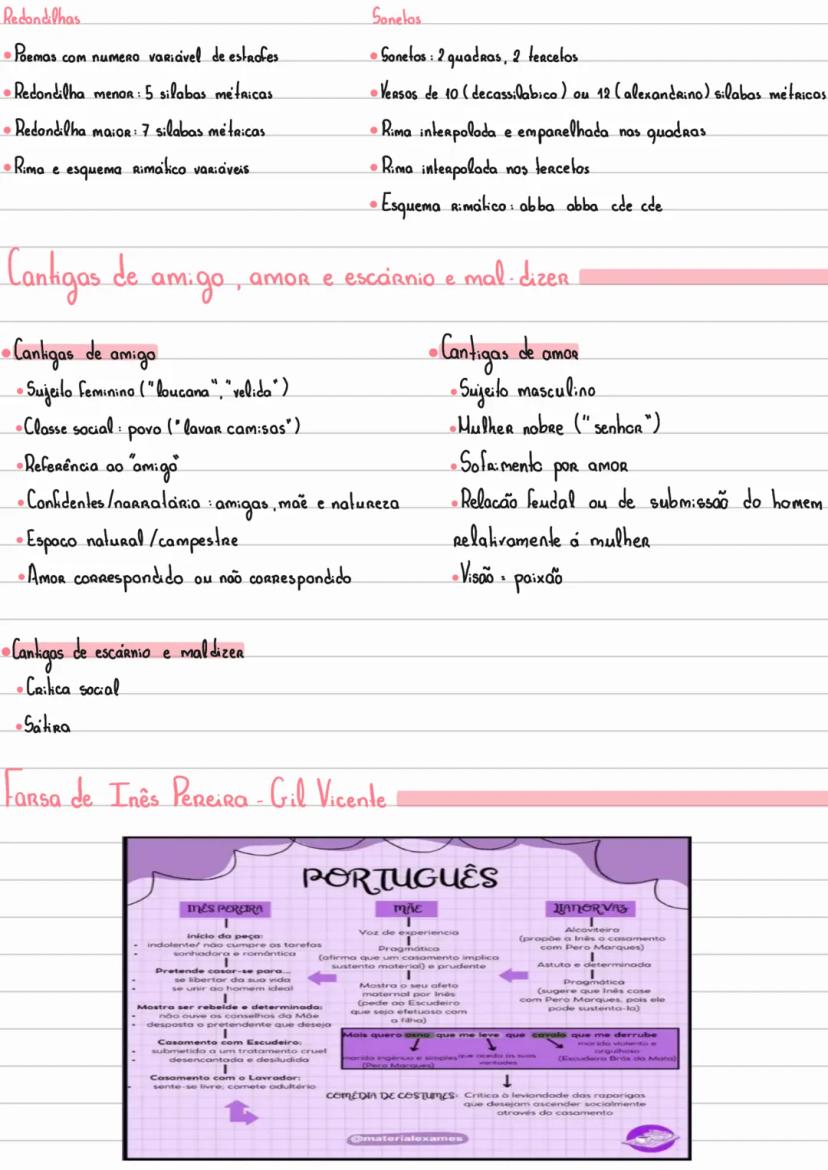 Redondilhas
• Poemas com numero variável de estrofes
• Redondilha menor: 5 silabas métricas
• Redondilha maior: 7 silabas métricas
• Rima e esquema rimático variáveis
Sonetos
• Sonetos: 2 quadras, 2 tercetos
• Versos de 10 (decassilabico) ou 12 (alexandrino) silabas métricas
• Rima interpolada e emparelhada nas quadras
• Rima interpolada nos tercetos
• Esquema rimático: abba abba cde cde
Cantigas de amigo, amor e escárnio e mal-dizer
• Cantigas de amigo
• Sujeito Feminino ("loucana", "velida")
• Classe social: povo ("lavar camisas")
• Referência ao "amigo"
• Confidentes/narratário: amigas, mãe e natureza
• Espaco natural/campestre
• Amor correspondido ou não correspondido
• Cantigas de amor
• Sujeito masculino
• Mulher nobre ("senhor")
• Sofrimento por amor
• Relacão feudal ou de submissão do homem
relativamente á mulher
• Visão = paixão
• Cantigas de escárnio e maldizer
• Critica social
• Sátira
Farsa de Inês Pereira - Gil Vicente
PORTUGUÊS
INÊS PEREIRA
Início da peça:
• indolente/ não cumpre as tarefas
• sonhadora e romântica
Pretende casar-se para...
• se libertar da sua vida
• se unir ao homem ideal
Mostra ser rebelde e determinada:
• não ouve os conselhos da Mãe
• desposta o pretendente que deseja
Casamento com Escudeiro:
• submetida a um tratamento cruel
• desencantada e desiludida
Casamento com o Lavrador:
• sente-se livre; comete adultério
MÃE
Voz de experiencia
Pragmática
(afirma que um casamento implica
sustento material) e prudente
Mostra o seu afeto
maternal por Inês
(pede ao Escudeiro
que seja efetuoso com
a filha)
LIANOR VAS
Alcoviteira
(propõe a Inês o casamento
com Pero Marques)
Astuta e determinada
Pragmática
(sugere que Inês case
com Pero Marques, pois ele
pode sustenta-la)
Mais quero asno que me leve que cavalo que me derrube
marido ingénuo e simples
(Pero Marques)
que aceda às suas
vontades
marido violento e
orgulhoso
(Escudeiro Brás da Mata)
COMÉDIA DE COSTUMES: Crítica à leviandade das raparigas
que desejam ascender socialmente
através do casamento
@materialexames